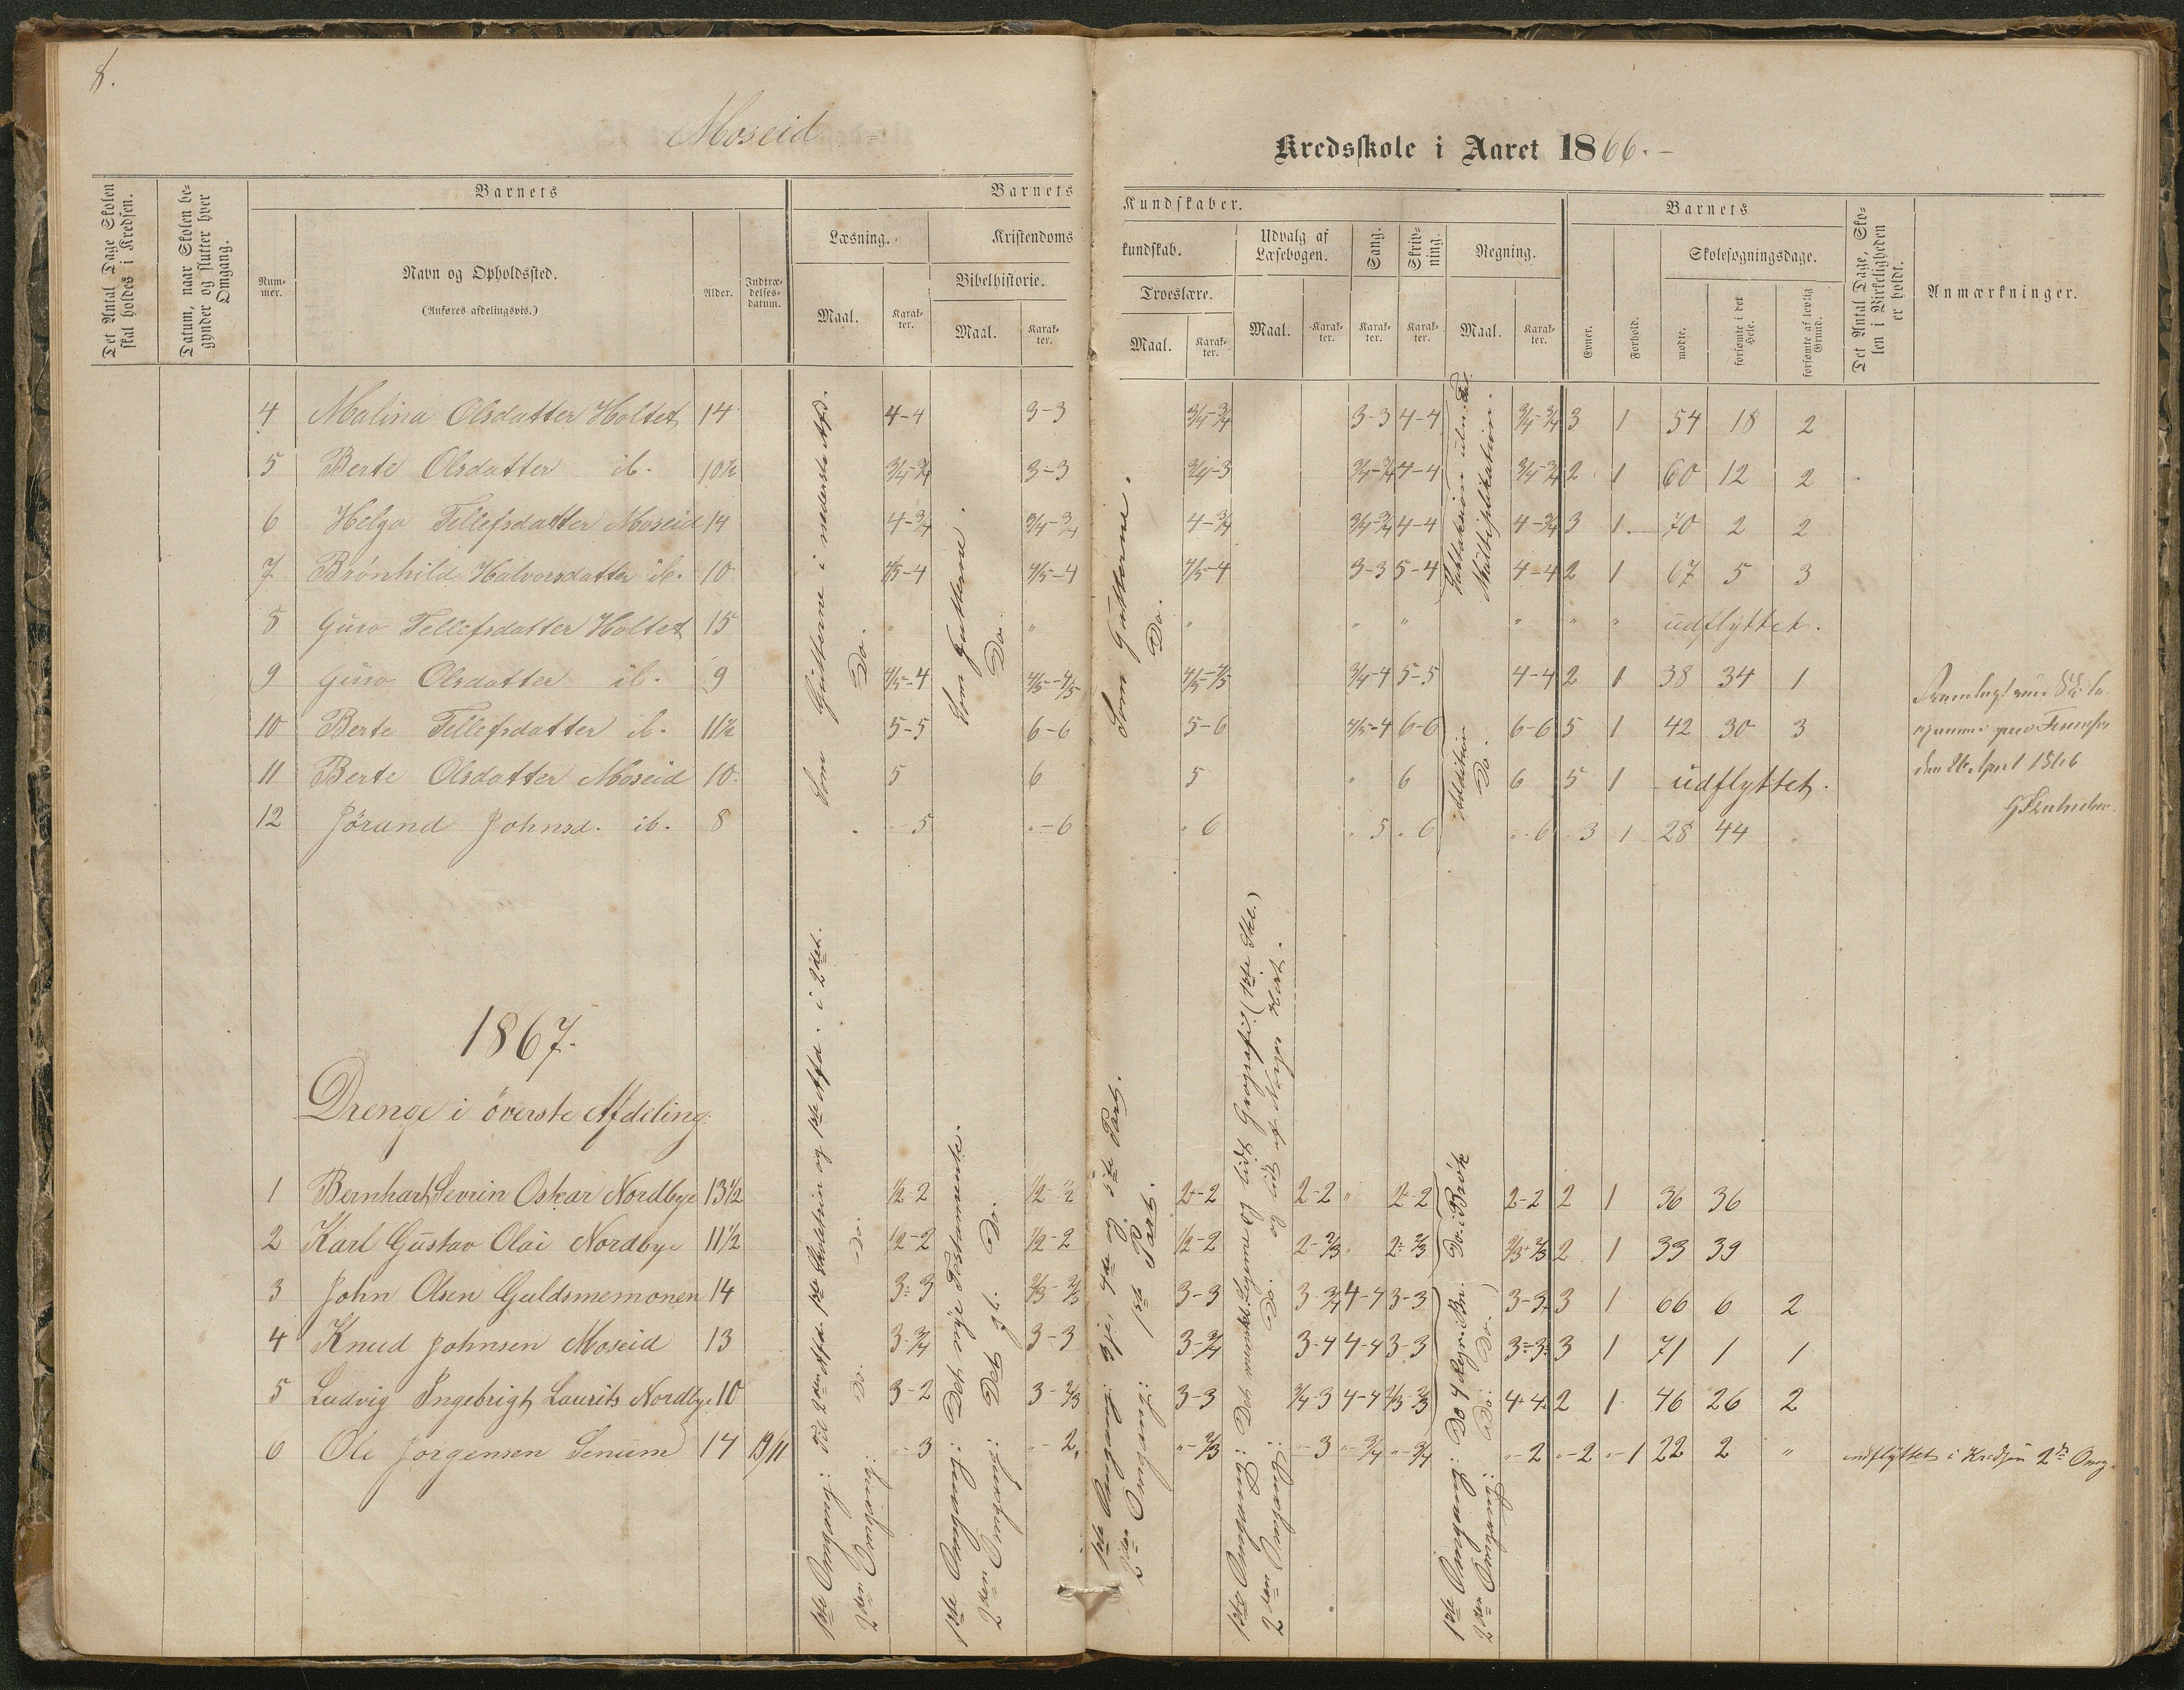 8.
Moseid
Kredsskole i Aaret 1866.
Det Antal Dage Skolen skal holdes i Kredsen.
Datum, naar Skolen begynder og slutter hver Omgang.
Barnets
Nummer.
Navn og Opholdssted.
(Anføres afdelingsvis.)
Alder.
Indtrædelsesdatum.
Barnets
Kundskaber.
Læsning.
Maal.
Karakter.
Kristendoms
kundskab.
Bibelhistorie.
Maal.
Karakter.
Troeslære.
Maal.
Karakter.
Udvalg af Læsebogen.
Maal.
Karakter.
Sang.
Karakter.
Skrivning.
Karakter.
Regning.
Maal.
Karakter.
Barnets
Evner.
Forhold.
Skolesøgningsdage.
mødte.
forsømte i det Hele.
forsømte af lovlig Grund.
Det Antal Dage, Skolen i Virkeligheden er holdt.
Anmærkninger.
4 Malina Olsdatter Holtet 14 4-4 3-3 3/4-3/4 3-3 4-4 3/4-3/4 3 1 54 18 2
5 Berte Olsdatter ib. 10½ 3/4-3/4 3-3 3/4-3 3/4-3/4 4-4 3/4-3/4 2 1 60 12 2
6 Helga Tellefsdatter Moseid 14 4-3/4 3/4-3/4 4-3/4 3/4-3/4 4-4 4-3/4 3 1 70 2 2
7 Brønhild Halvorsdatter ib. 10 4/5-4 4/5-4 4/5-4 3-3 5-4 4-4 2 1 67 5 3
8 Guro Tellefsdatter Holtet 15 " " " " " " " " udflyttet.
9 Guro Olsdatter ib. 9 4/5-4 4/5-4/5 4/5-4/5 3/4-4 5-5 4-4 2 1 38 34 1
10 Berte Tellefsdatter ib. 11½ 5-5 6-6 5-6 4/5-4 6-6 6-6 5 1 42 30 3
11 Berte Olsdatter Moseid 10 5 6 5 " 6 6 5 1 udflyttet.
12 Jørand Johnsd. ib. 8 "-5 "-6 " 6 " 5 " 6 "-6 3 1 28 44 "
Som Gutterne i nederste Afd.
Do.
Som Gutterne.
Do.
Som Gutterne.
Do.
Multiplikation.
Addition
Do.
den 26 April 1866
1867.
Drenge i överste Afdeling:
1 Bernhart Sevrin Oskar Nordbye 13½ ½-2 ½-½ 2-2 2-2 " 2-2 2-2 2 1 36 36
2 Karl Gustav Olai Nordbye 11½ ½-2 ½-2 ½-2 2-2/3 " 2-2/3 2/3-2/3 2 1 33 39
3 John Olsen Guldsmemonen 14 3-3 2/3-2/3 3-3 3-3/4 4-4 3-3 3-3 3 1 66 6 2
4 Knud Johnsen Moseid 13 3-3/4 3-3 3-3/4 3-4 4-4 3-3 3-3 3 1 71 1 1
5 Ludvig Ingebrigt Laurits Nordbye 10 3-2 3-2/3 3-3 3/4-3 4-4 2/3-2/3 4-4 2 1 46 26 2
6 Ole Jørgensen Senum 14 19/11 "-3 "-2 "-2/3 "-3 "-3/4 "-3/4 "-2 "-2 "-1 22 2 " indflyttet i Kredsen 2den Omg.
1ste Omgang: Til 2den Afd. 1ste Skoletrin og 1ste Afd. i 2det.
2den Omgang: Do. Do.
1ste Omgang: Det nye Testamente.
2den Omgang: Det g. Do.
1ste Omgang: 3je, 4de og 5te Part.
2den Omgang: 1ste Part.
2den Omgang: Do.
1ste Omgang: Do 4 Do i Brøk
2den Omgang: Do. Do.